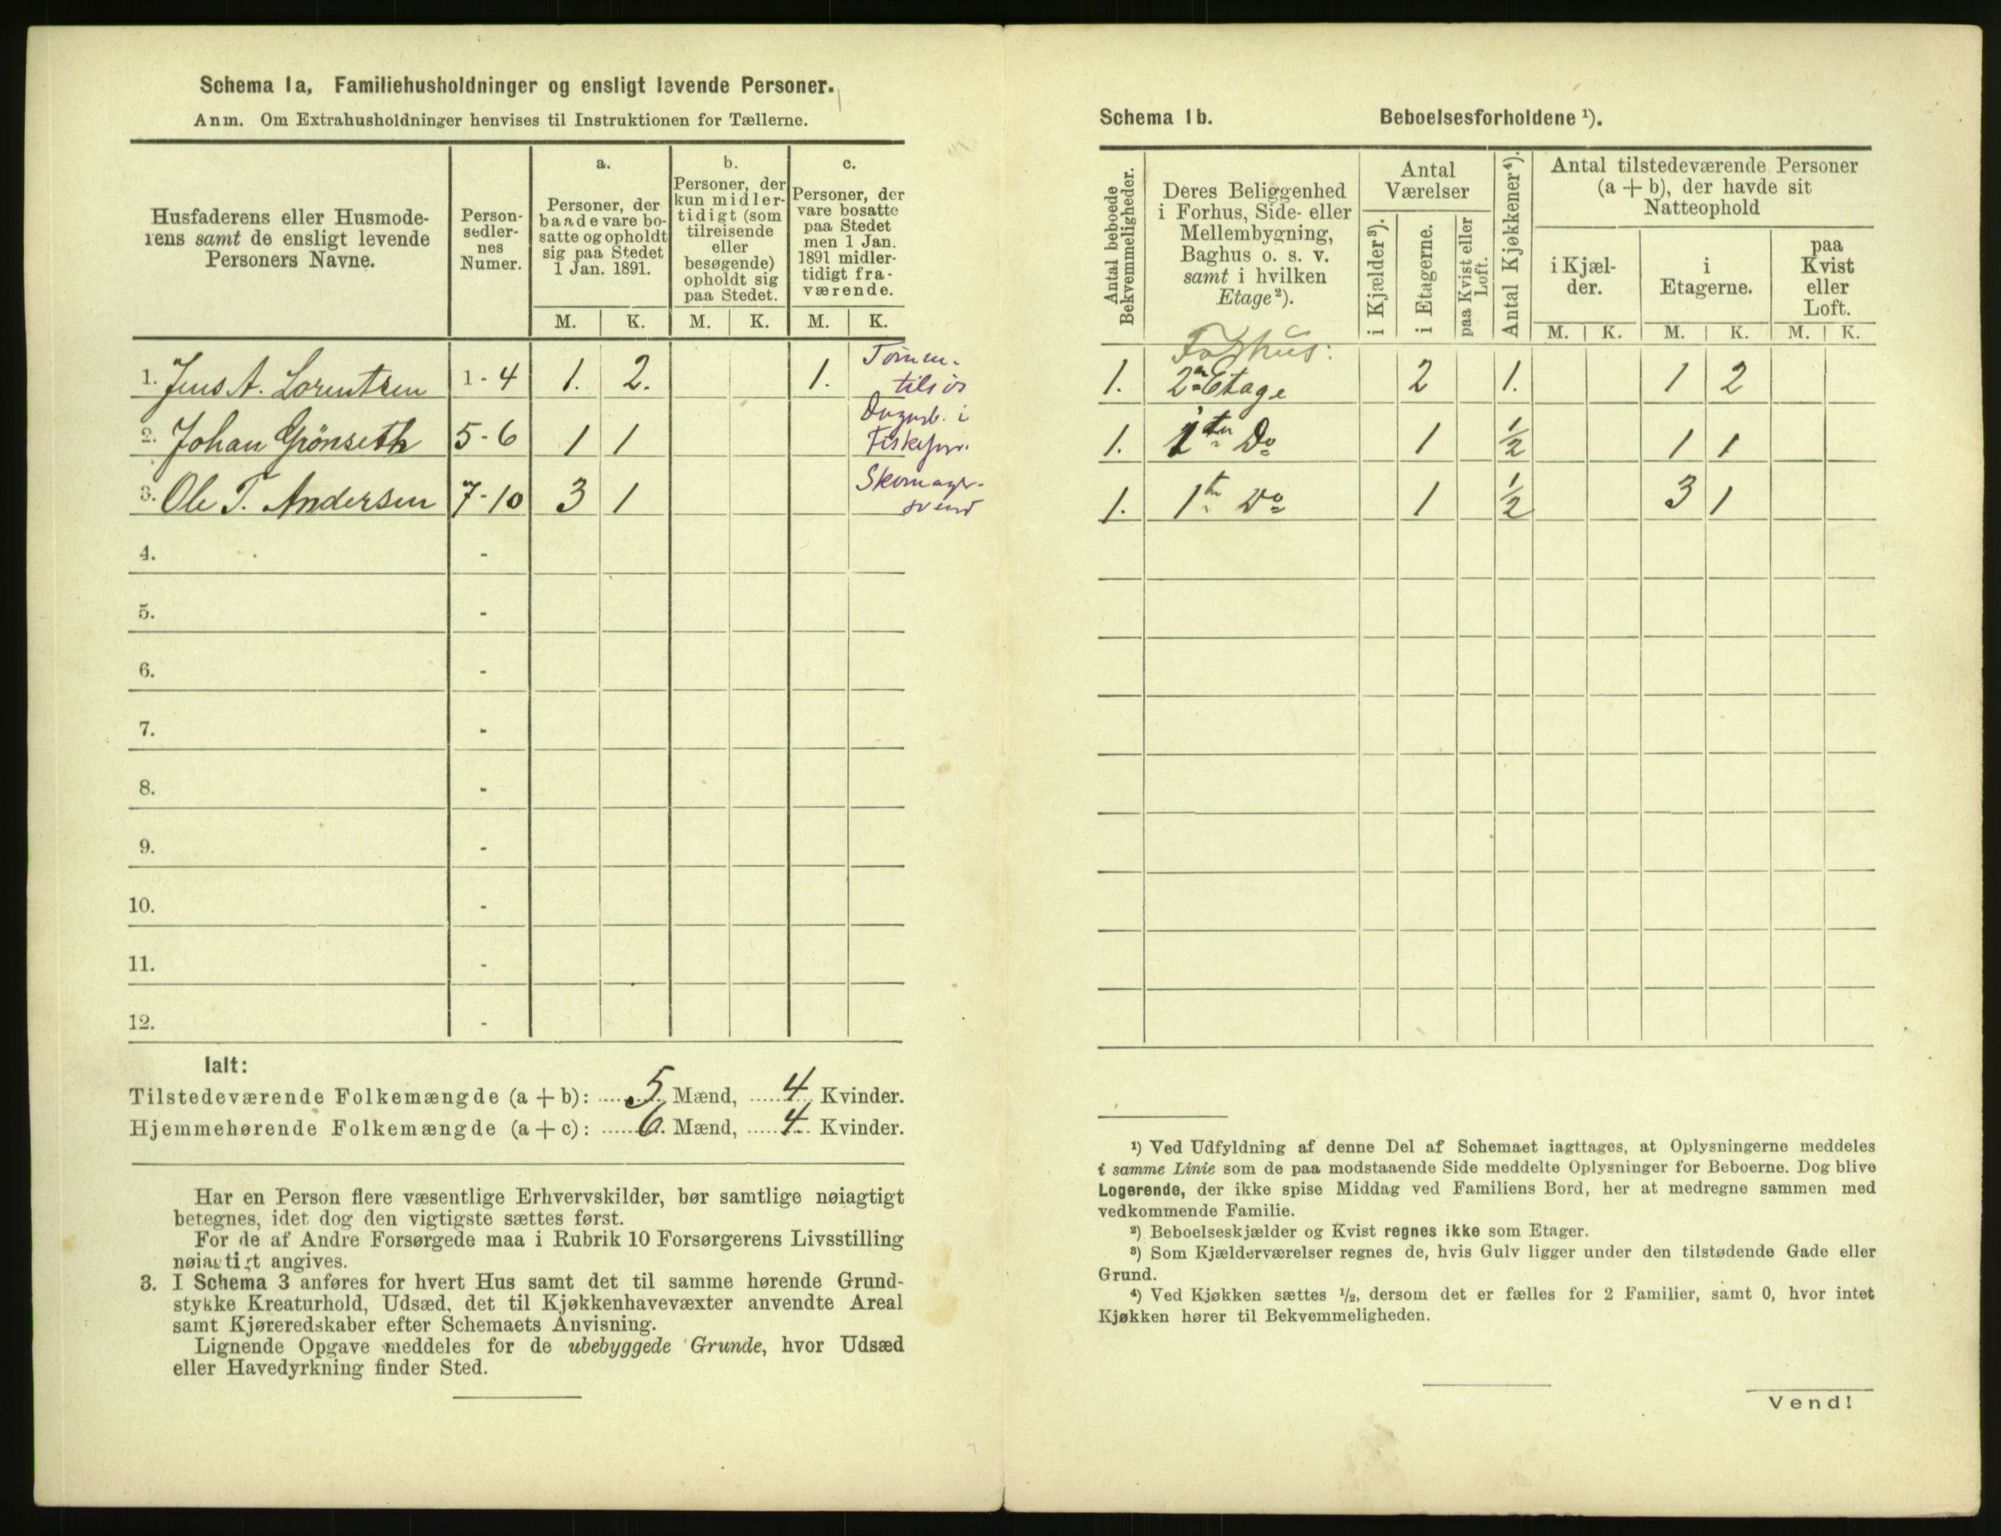 Schema 1a. Familiehusholdninger og ensligt levende Personer.
Anm. Om Extrahusholdninger henvises til Instruktionen for Tællerne.
Husfaderens eller Husmode-
rens samt de ensligt levende
Personers Navne.
Person-
sedler-
nes
Numer.
a.
Personer, der
baade vare bo-
satte og opholdt
sig paa Stedet
1 Jan. 1891.
b.
Personer, der
kun midler-
tidigt (som
tilreisende
eller
besøgende)
opholdt sig
paa Stedet.
c.
Personer, der
vare bosatte
paa Stedet
men 1 Jan.
1891 midler-
tidigt fra-
værende.
M. K. M. K. M. K.
1. Jens A. Lorentzen 1-4 1. 2. 1. Tømm.
tilsös
2. Johan Grönseth 5-6 1 1 i
Fiskeforr.
3. Ole T. Andersen 7-10 3 1 Skomager-
svend
4. -
5. -
6. -
7. -
8. -
9. -
10. -
11. -
12. -
Ialt:
Tilstedeværende Folkemængde (a + b): 5 Mænd, 4 Kvinder.
Hjemmehørende Folkemængde (a + c): 6 Mænd, 4 Kvinder.
Har en Person flere væsentlige Erhvervskilder, bør samtlige nøiagtigt
betegnes, idet dog den vigtigste sættes først.
For de af Andre Forsørgede maa i Rubrik 10 Forsørgerens Livsstilling
nøiagtigt angives.
3. I Schema 3 anføres for hvert Hus samt det til samme hørende Grund-
stykke Kreaturhold, Udsæd, det til Kjøkkenhavevæxter anvendte Areal
samt Kjøreredskaber efter Schemaets Anvisning.
Lignende Opgave meddeles for de ubebyggede Grunde, hvor Udsæd
eller Havedyrkning finder Sted.
Schema 1b. Beboelsesforholdene ¹).
Antal beboede
Bekvemmeligheder.
Deres Beliggenhed
i Forhus, Side- eller
Mellembygning,
Baghus o. s. v.
samt i hvilken
Etage ²).
Antal
Værelser
i Kjælder ³).
i Etagerne.
paa Kvist eller
Loft.
Antal Kjøkkener ⁴).
Antal tilstedeværende Personer
(a + b), der havde sit
Natteophold
i Kjæl-
der.
i
Etagerne.
paa
Kvist
eller
Loft.
M. K. M. K. M. K.
Forhus:
1. 2den Etage 2 1. 1 2
1. 1ste Do 1 ½ 1 1
1. 1ste Do 1 ½ 3 1
¹) Ved Udfyldning af denne Del af Schemaet iagttages, at Oplysningerne meddeles
i samme Linie som de paa modstaaende Side meddelte Oplysninger for Beboerne. Dog blive
Logerende, der ikke spise Middag ved Familiens Bord, her at medregne sammen med
vedkommende Familie.
²) Beboelseskjælder og Kvist regnes ikke som Etager.
³) Som Kjælderværelser regnes de, hvis Gulv ligger under den tilstødende Gade eller
Grund.
⁴) Ved Kjøkken sættes ½, dersom det er fælles for 2 Familier, samt 0, hvor intet
Kjøkken hører til Bekvemmeligheden.
Vend!